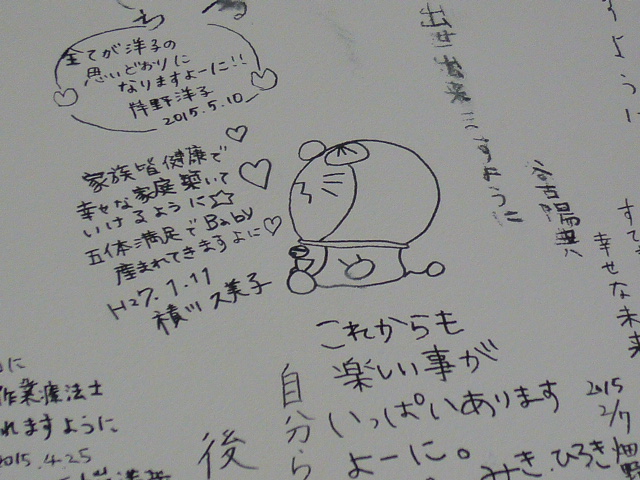 全てが洋子の
思いどおりに
なりますよーに!!
洋子
2015.5.10
家族皆健康で
幸せな家庭築いて
いけるように☆
五体満足でBaby
産まれてきますよに♡
H27.1.11
積川久美子
出世出来ますように
ように
幸せな未来
これからも
楽しい事が
いっぱいあります
よーに。
みき.ひろき
2015
2/7
自分ら
後
に
作業療法士
れますように
2015.4.25